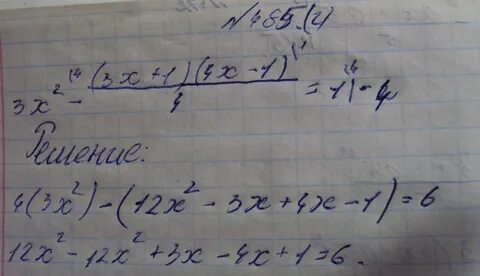 №485.(2)
3x² - (3x+1)(4x-1)/4 = 1 |·4
Решение:
4(3x²) - (12x² - 3x + 4x - 1) = 6
12x² - 12x² + 3x - 4x + 1 = 6.